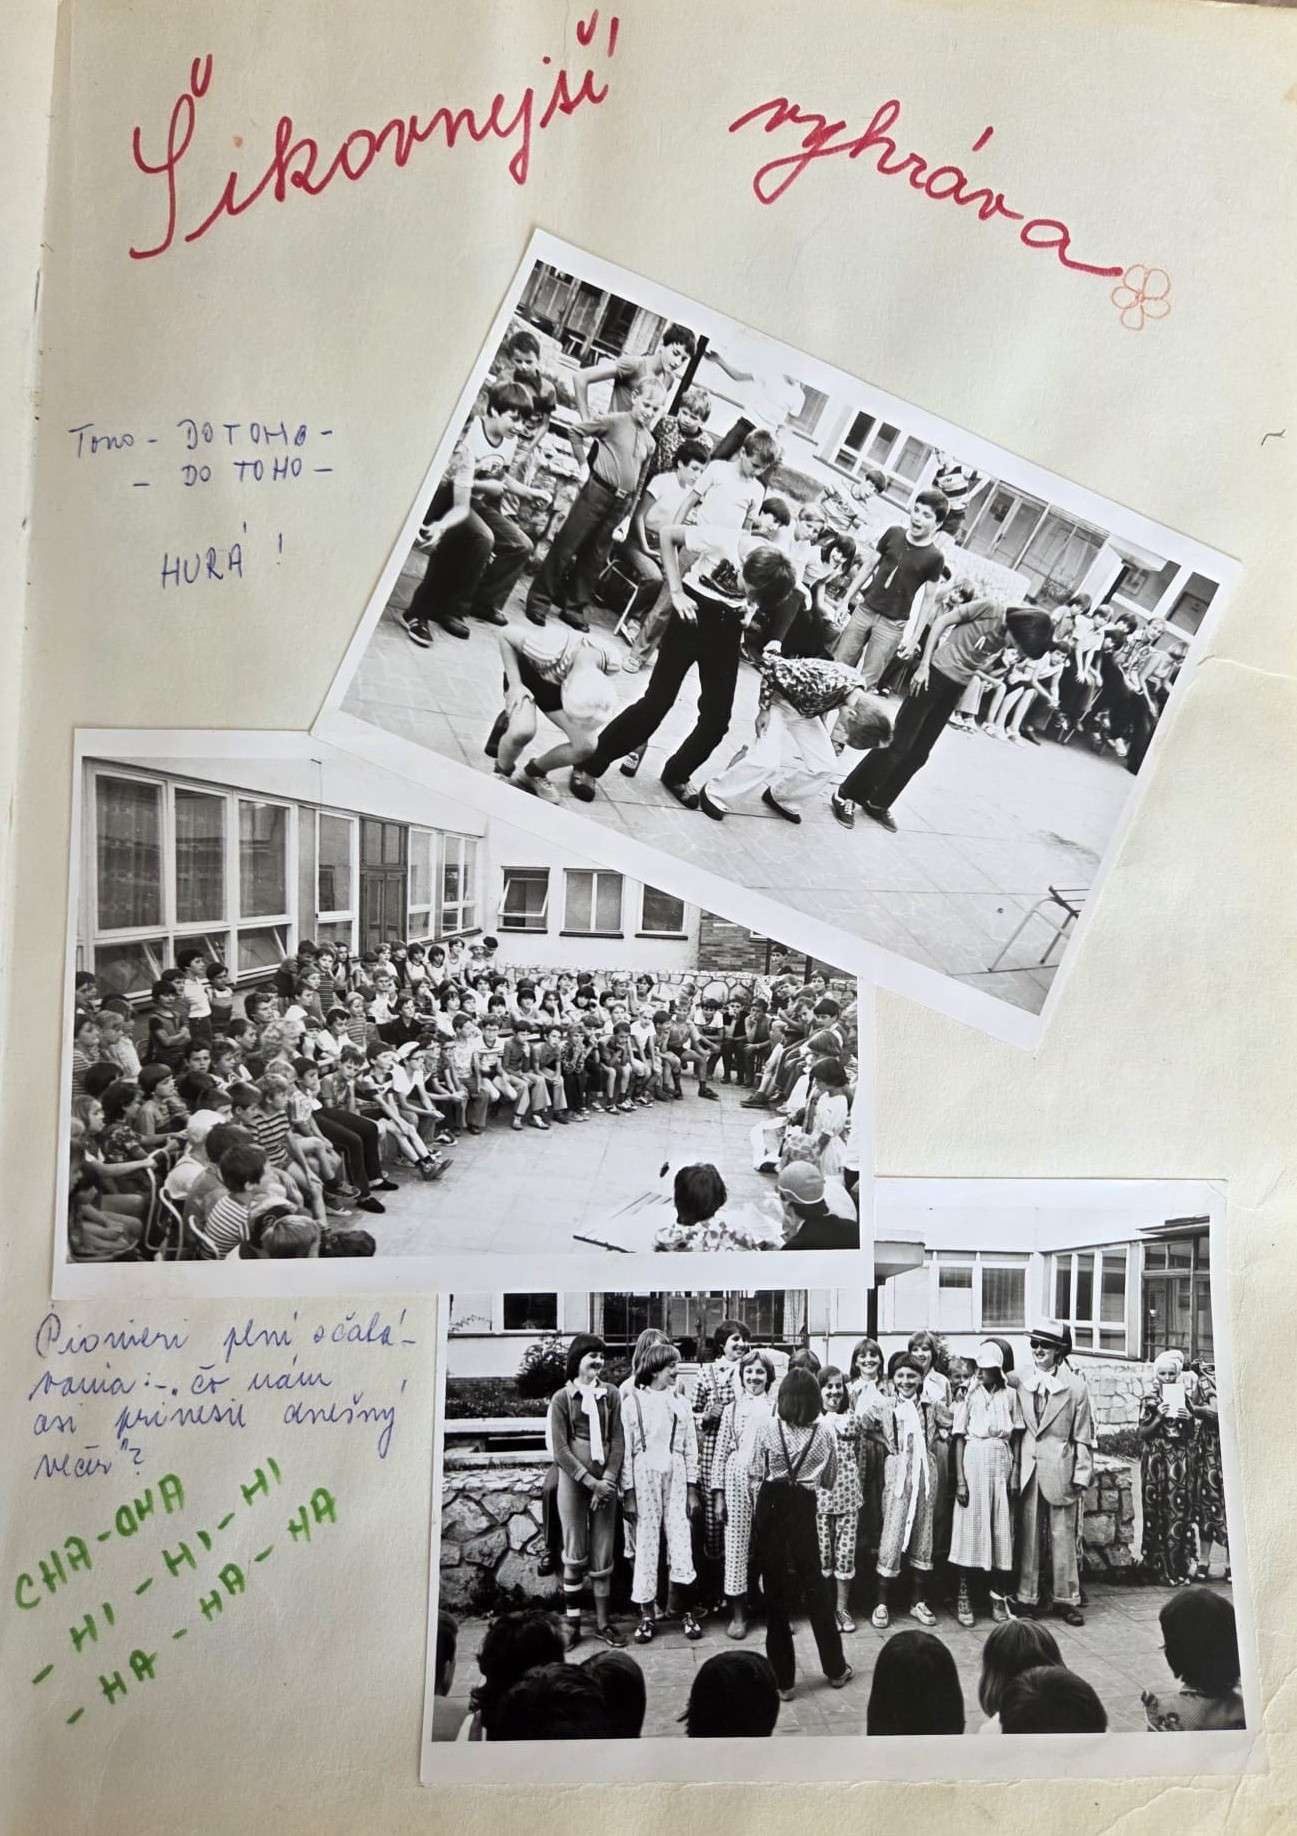 Šikovnejší vyhráva
Tono - DO TOHO -
- DO TOHO -
HURÁ!
Pionieri plní očaká-
vania: - „čo nám
asi prinesie dnešný
večer"?
CHA-CHA
- HI - HI - HI
- HA - HA - HA